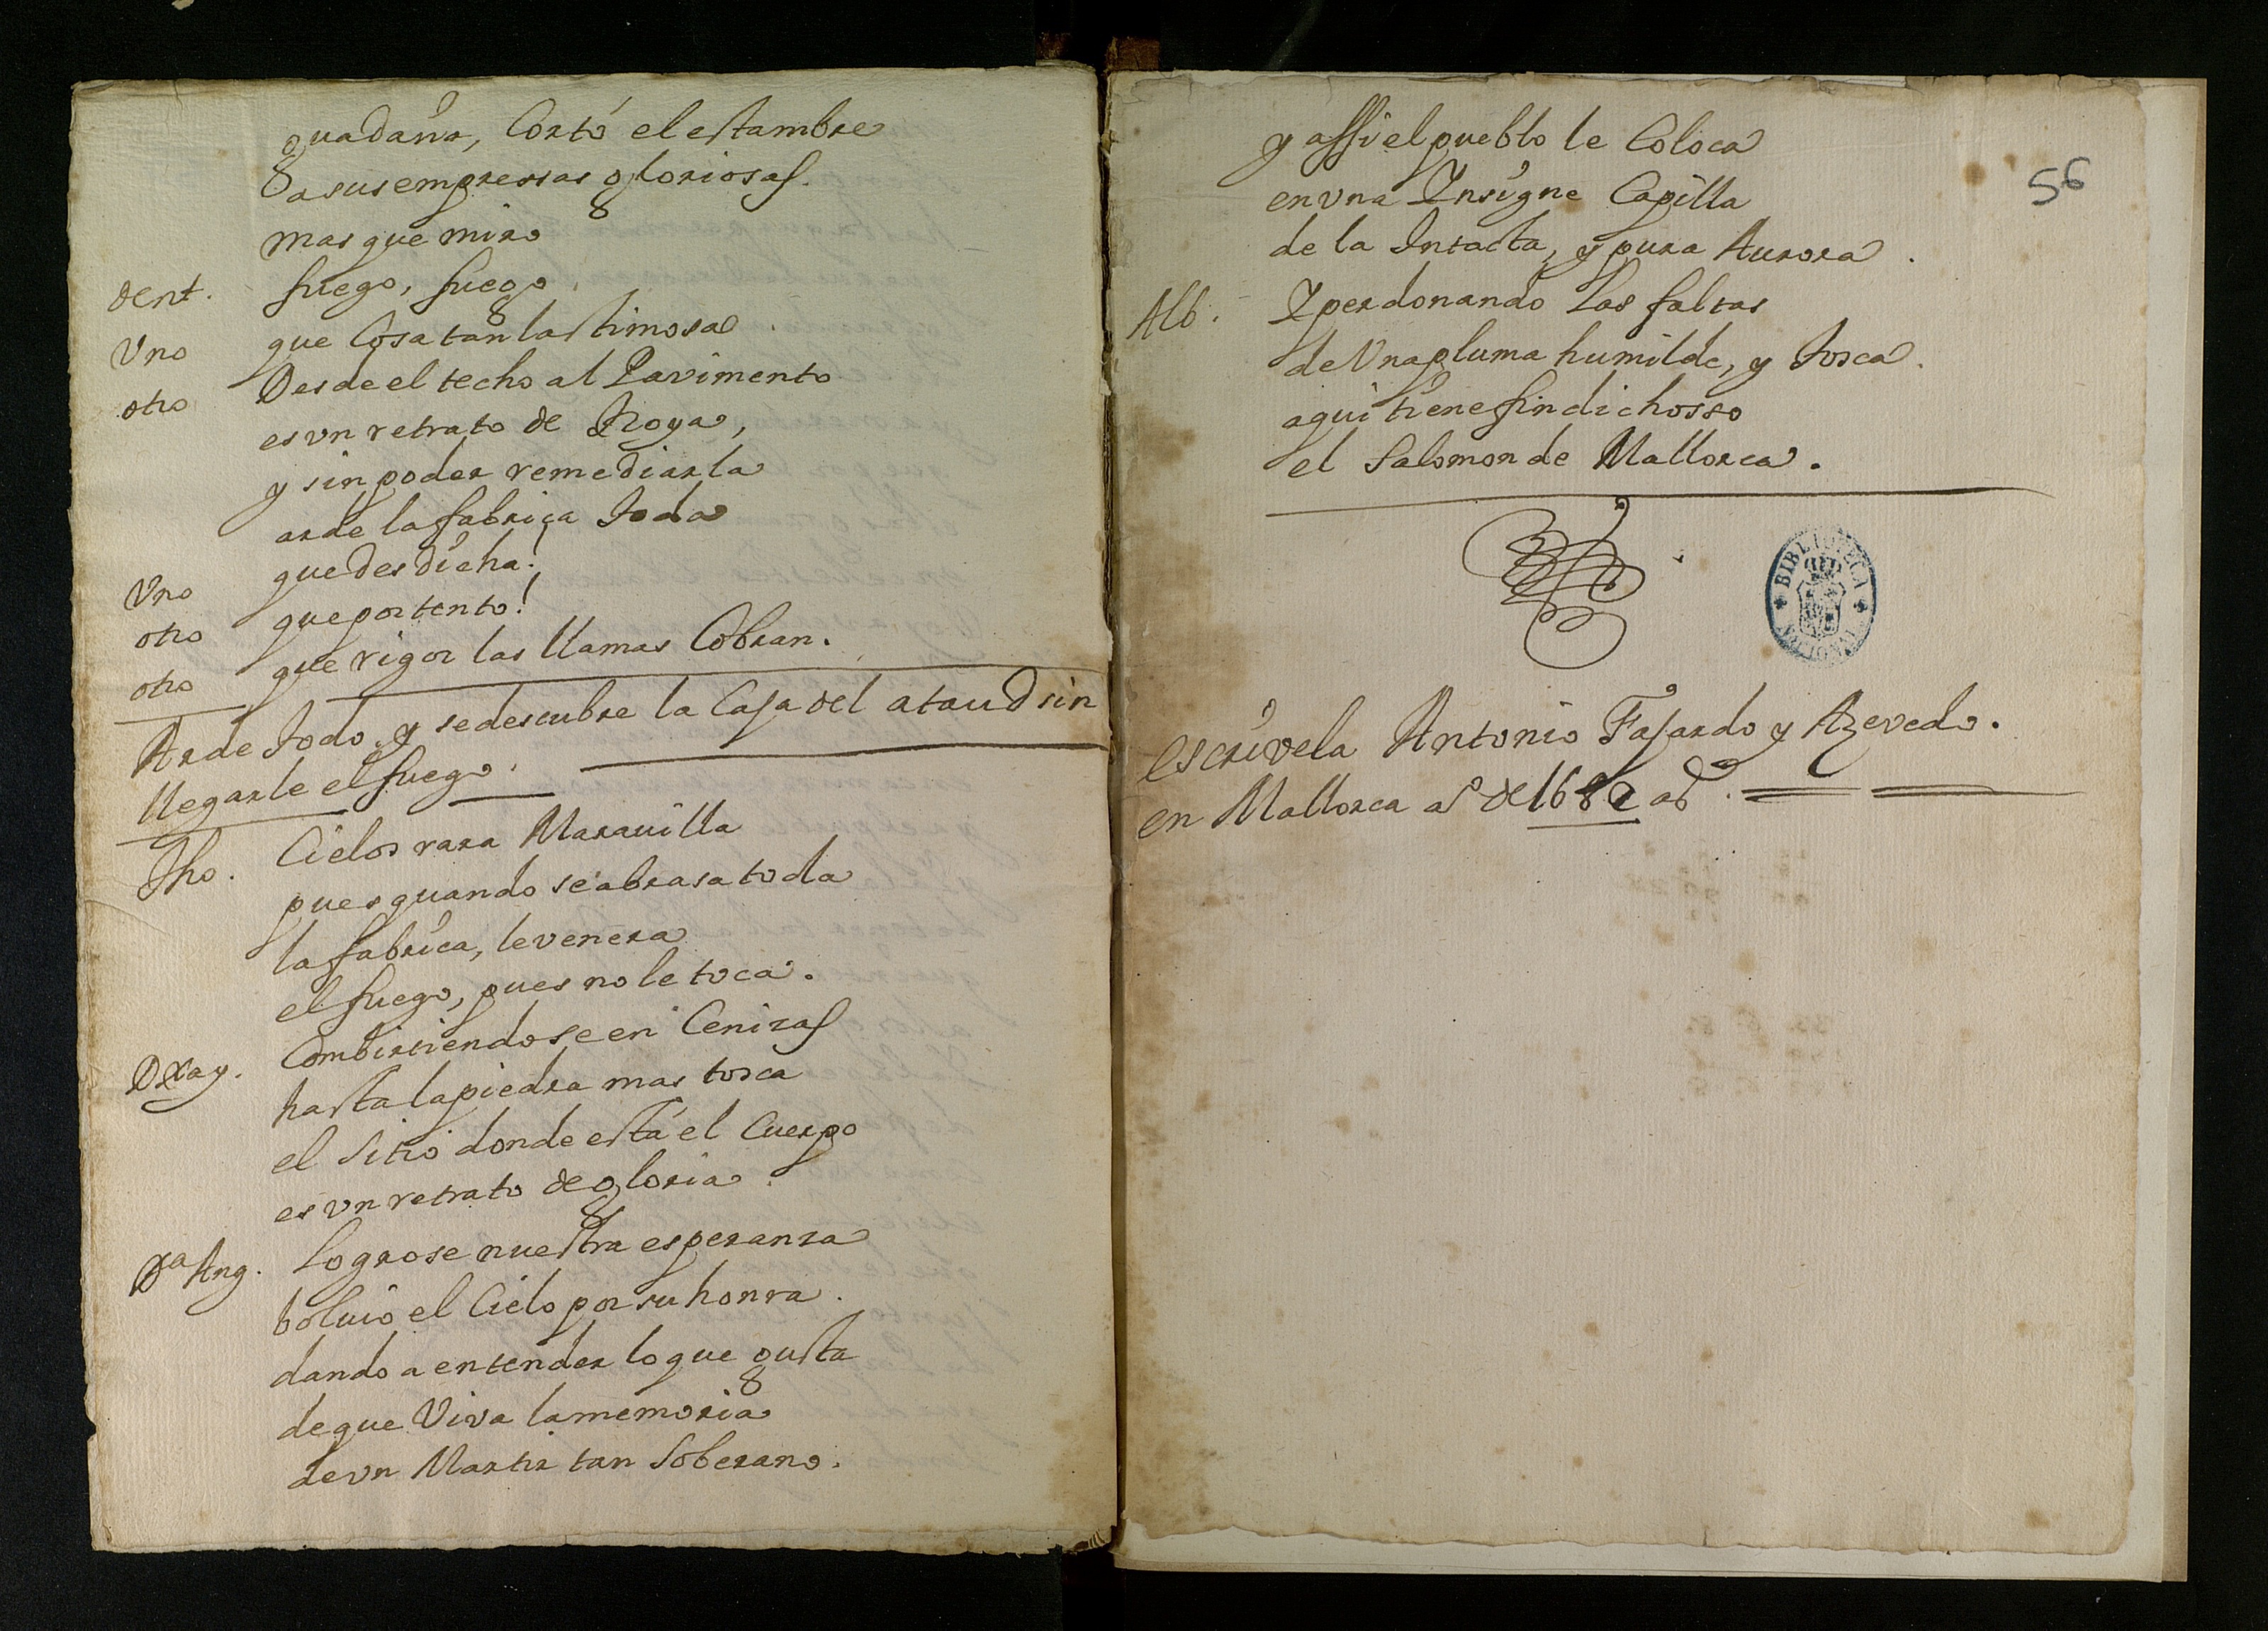 guadaña, Cortó el estambre
a sus empressas gloriosas.
mas que miro
dent. fuego, fuego.
Vno que Cosa tan lastimosa.
otro Desde el techo al Pavimento
es vn retrato de Troya,
y sin poder remediarla
arde la fabrica toda
Vno que desdicha!
otro que portento!
otro que rigor las llamas Cobran.
Arde todo, y se descubre la Casa del ataud sin
llegarle el fuego.
Tho. Cielos rara Marauilla
pues quando se abrasa toda
la fabrica, le venera
el fuego, pues no le toca.
D Xay. Combirtiendose en Cenizas
hasta la piedra mas tosca
el sitio donde está el Cuerpo
es vn retrato de gloria.
Dª Ang. Logrose nuestra esperanza
boluio el Cielo por su honra.
dando a entender lo que gusta
de que Viva la memoria
de vn Martir tan Soberano.
56
y assi el pueblo le Coloca
en vna Insigne Capilla
de la Intacta, y pura Aurora.
Alb. Y perdonando las faltas
de Vna pluma humilde, y tosca.
aqui tiene fin dichosso
el Salomon de Mallorca.
BIBLIOTECA NACIONAL
escrivela Antonio Fajardo y Azevedo.
en Mallorca aº de 1682 aˢ.